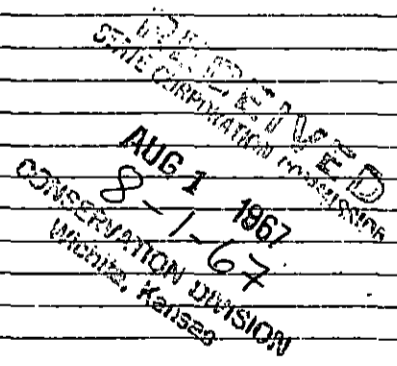 RECEIVED
STATE CORPORATION COMMISSION
AUG 1 1967
8-1-67
CONSERVATION DIVISION
Wichita, Kansas